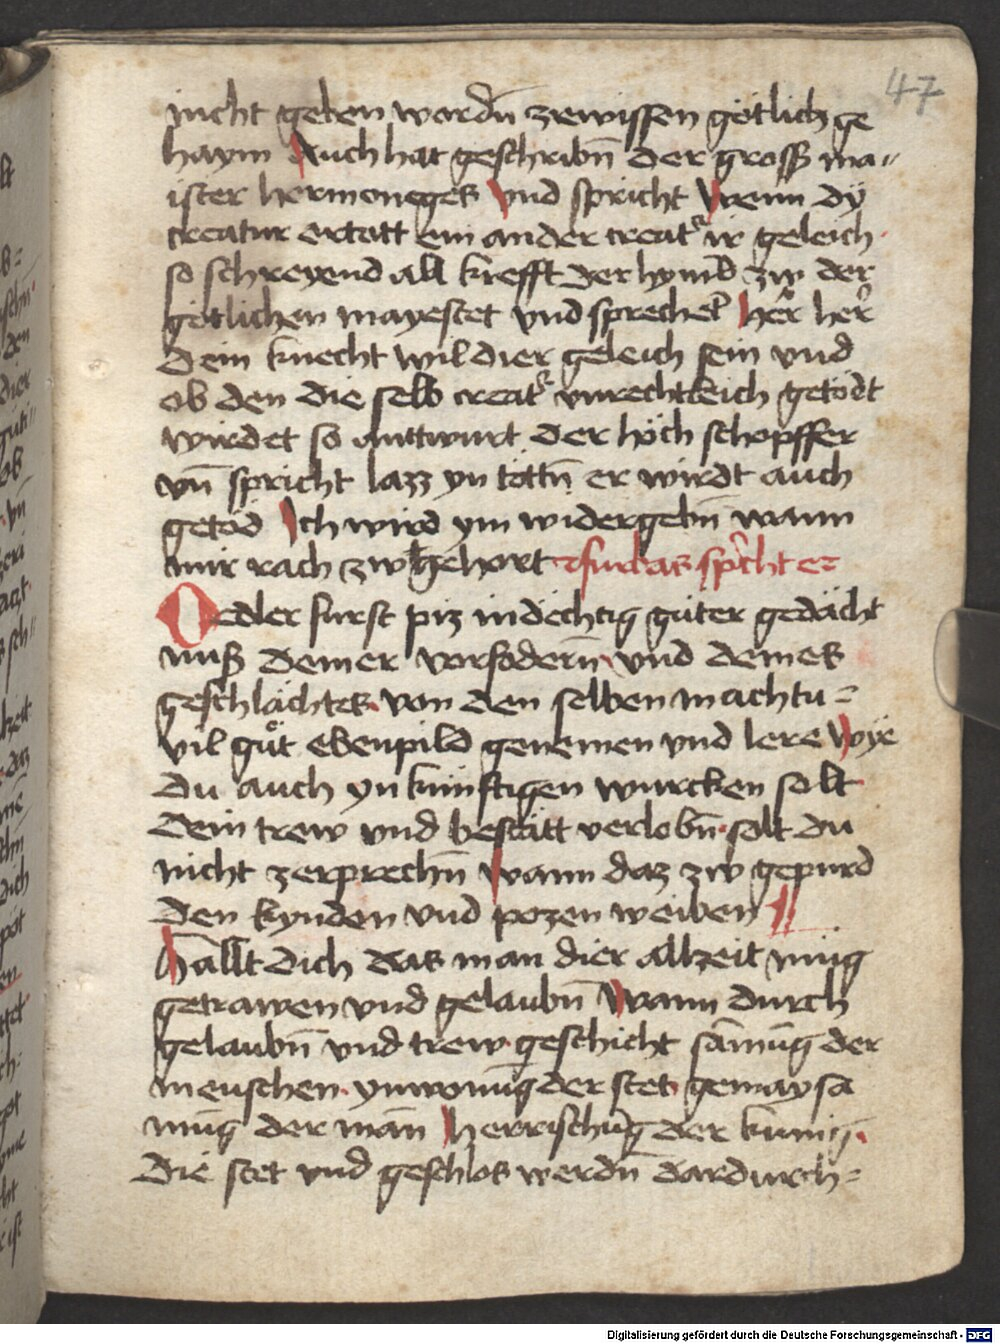 47
nicht geben wordn̄ zewissen götlich ge
haym Auch hat geschribn̄ der gross ma〃
ister hermoneges Vnd spricht Wenn dÿ
creatur ertött ein ander creatʳ ir geleich·
so schreyend all krefft der hyml̄ zw der
götlichen mayestet vnd sprechet her̄ her̄
dein knecht wil dier geleich sein vnd
ob den die selb creatʳ vnrechtleich getödt
wirdet so anttwurt der höch schopffer
vn̄ spricht lazz yn töttn̄ er wirdt auch
getod Ich wird ym widergebn̄ wann
mir rach zw gehort
O edler furst piz indechtig güter gedächt
nuß deiner vorfodern̄ vnd deines
geschlächtes· von den selben machtu =
vil güt ebenpild genemen vnd lere Wye
du auch yn künftigen wurcken solt
dein trew vnd bestätt verlobn̄· solt du
nicht zerprechn̄ Wann daz zw gepurd
den kynden vnd pozen weiben
Hallt dich das man dier allzeit müg
getrawen vnd gelaubn̄ Wann durch
gelaubn̄ vnd trew geschicht sāmūg der
menschen· ynwonūg der stet· gemaysa
mūg der man̄ herrischūg der kunig·
die stet vnd geschlos werdn̄ dardurch =
Digitalisierung gefördert durch die Deutsche Forschungsgemeinschaft - DFG